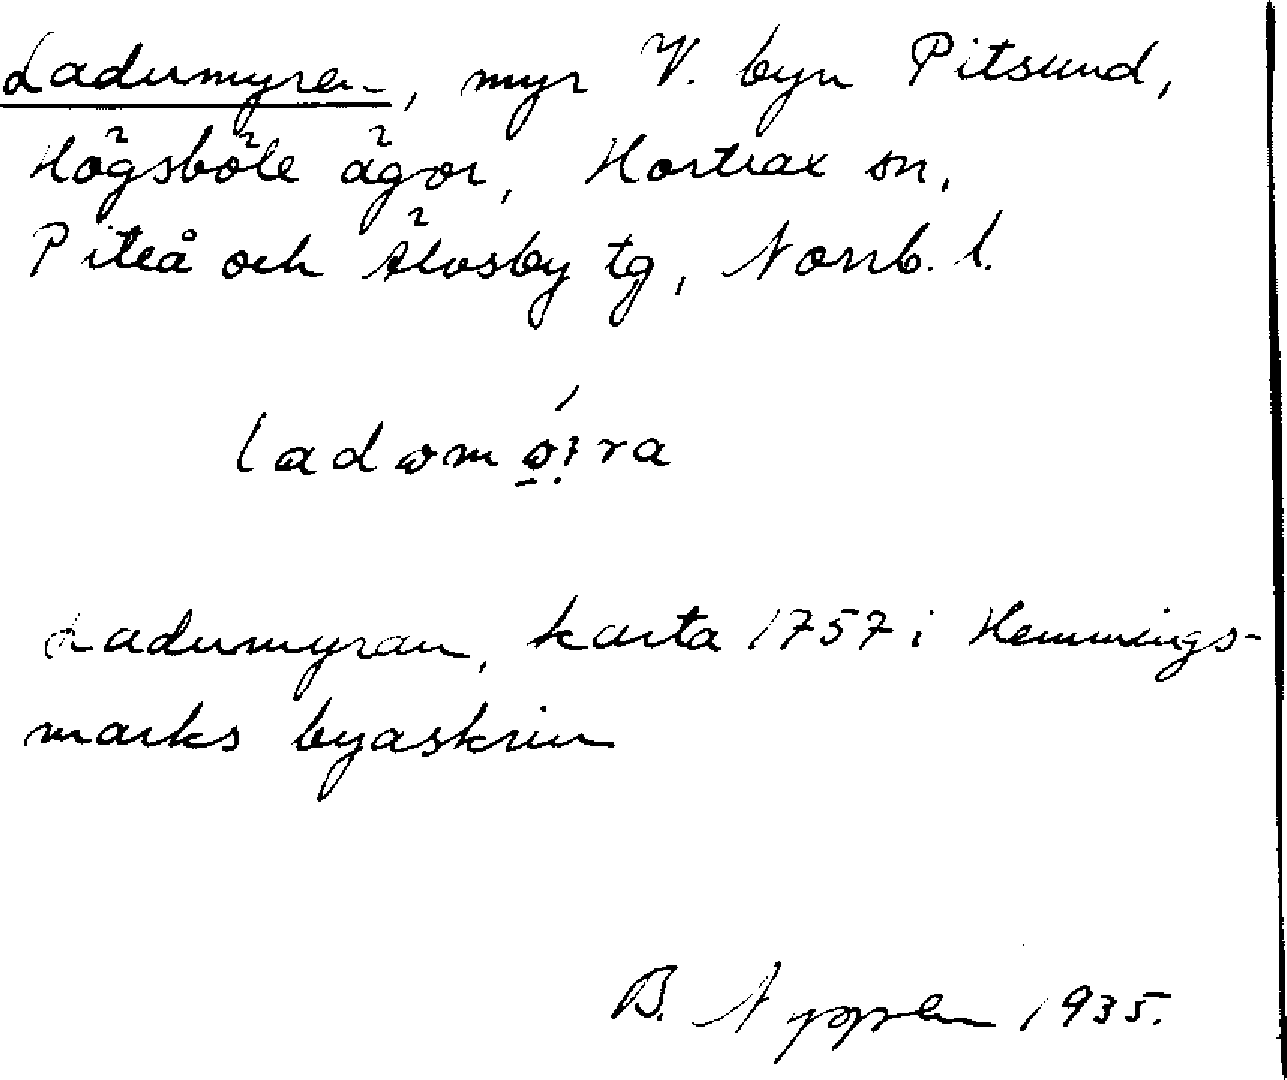 Ladumyran, myr V. byn Pitsund,
Högsböle ägor, Hortlax sn,
Piteå och Älvsby tg, Norrb. l.
Ladumyran, karta 1757 i Hemmings-
marks byaskrin
B. Nyppelin 1935.